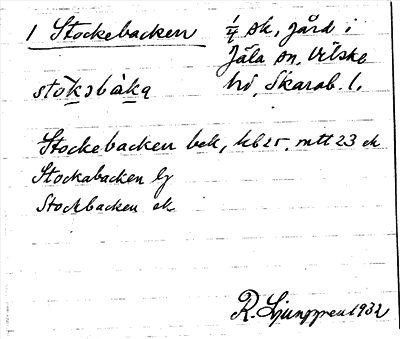 1 Stockebacken
1/4 sk, jård i
Jäla sn. Vilske
hd, Skarab. l.
stòksbàka
Stockebacken bek, kb 25. mtt 23 ek
Stockabacken lg
Stockbacken ek
R. Ljunggren 1932